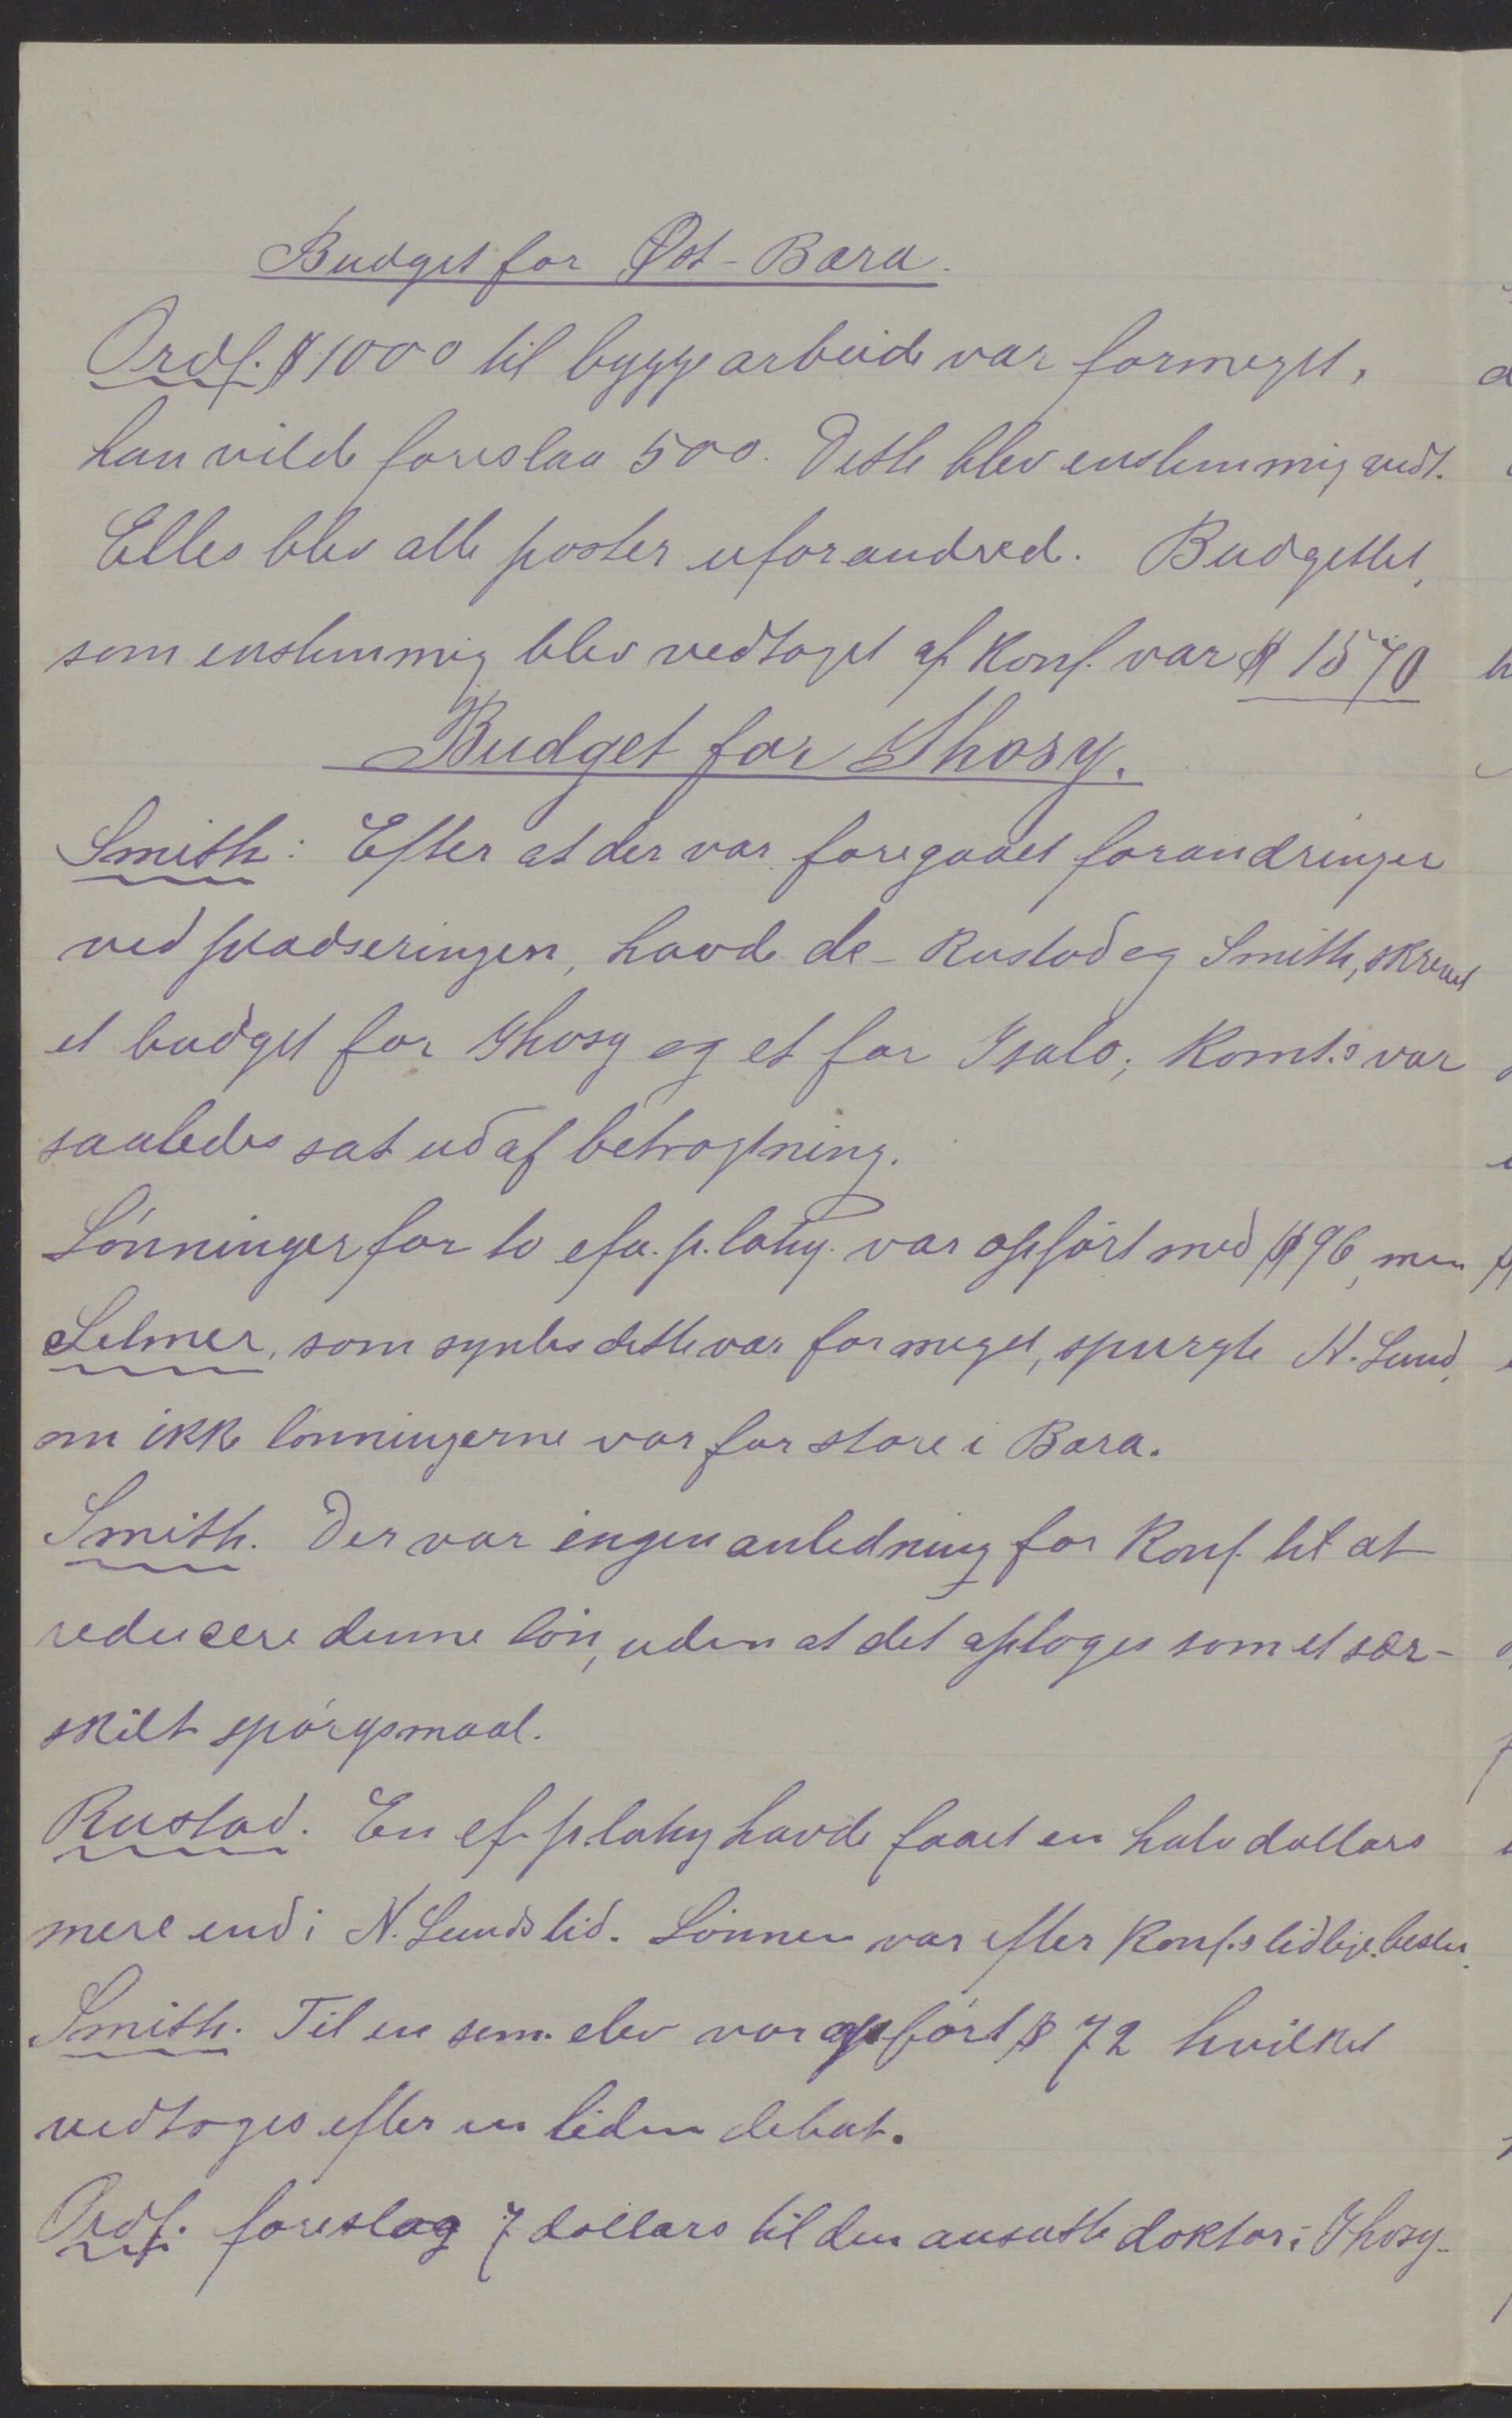 Budget for Øst-Bara.
Ordf. $ 1000 til byggearbeide var formeget,
han vilde foreslaa 500. Dette blev enstemmig vedt.
Elles blev alle poster uforandred. Budgettet,
som enstemmig blev vedtaget af Konf. var $ 1570
Budget for Ihosy.
Smith: Efter at der var foregaaet forandringer
ved pladseringen, havde de - Rustad og Smith, skrevet
et budget for Ihosy og et for Isalo; Komt.s var
saaledes sat ud af betragtning.
Lønninger for to efa. p. lahy. var opført med $ 96, men
Selmer, som syntes dette var for meget, spurgte N. Lund,
om ikke lønningerne var for store i Bara.
Smith. Der var ingen anledning for Konf. til at
reducere denne løn, uden at det optoges som et sær-
skilt spørgsmaal.
Rustad. En ef. p. lahy havde faaet en halv dollars
mere end i N. Lunds tid. Lønnen var efter Konf.s tidlige. bestem.
Smith. Til en sem. elev var opført $ 72 hvilket
vedtoges efter en liden debat.
Ordf. foreslog 7 dollars til den ansatte doktor i Ihosy-